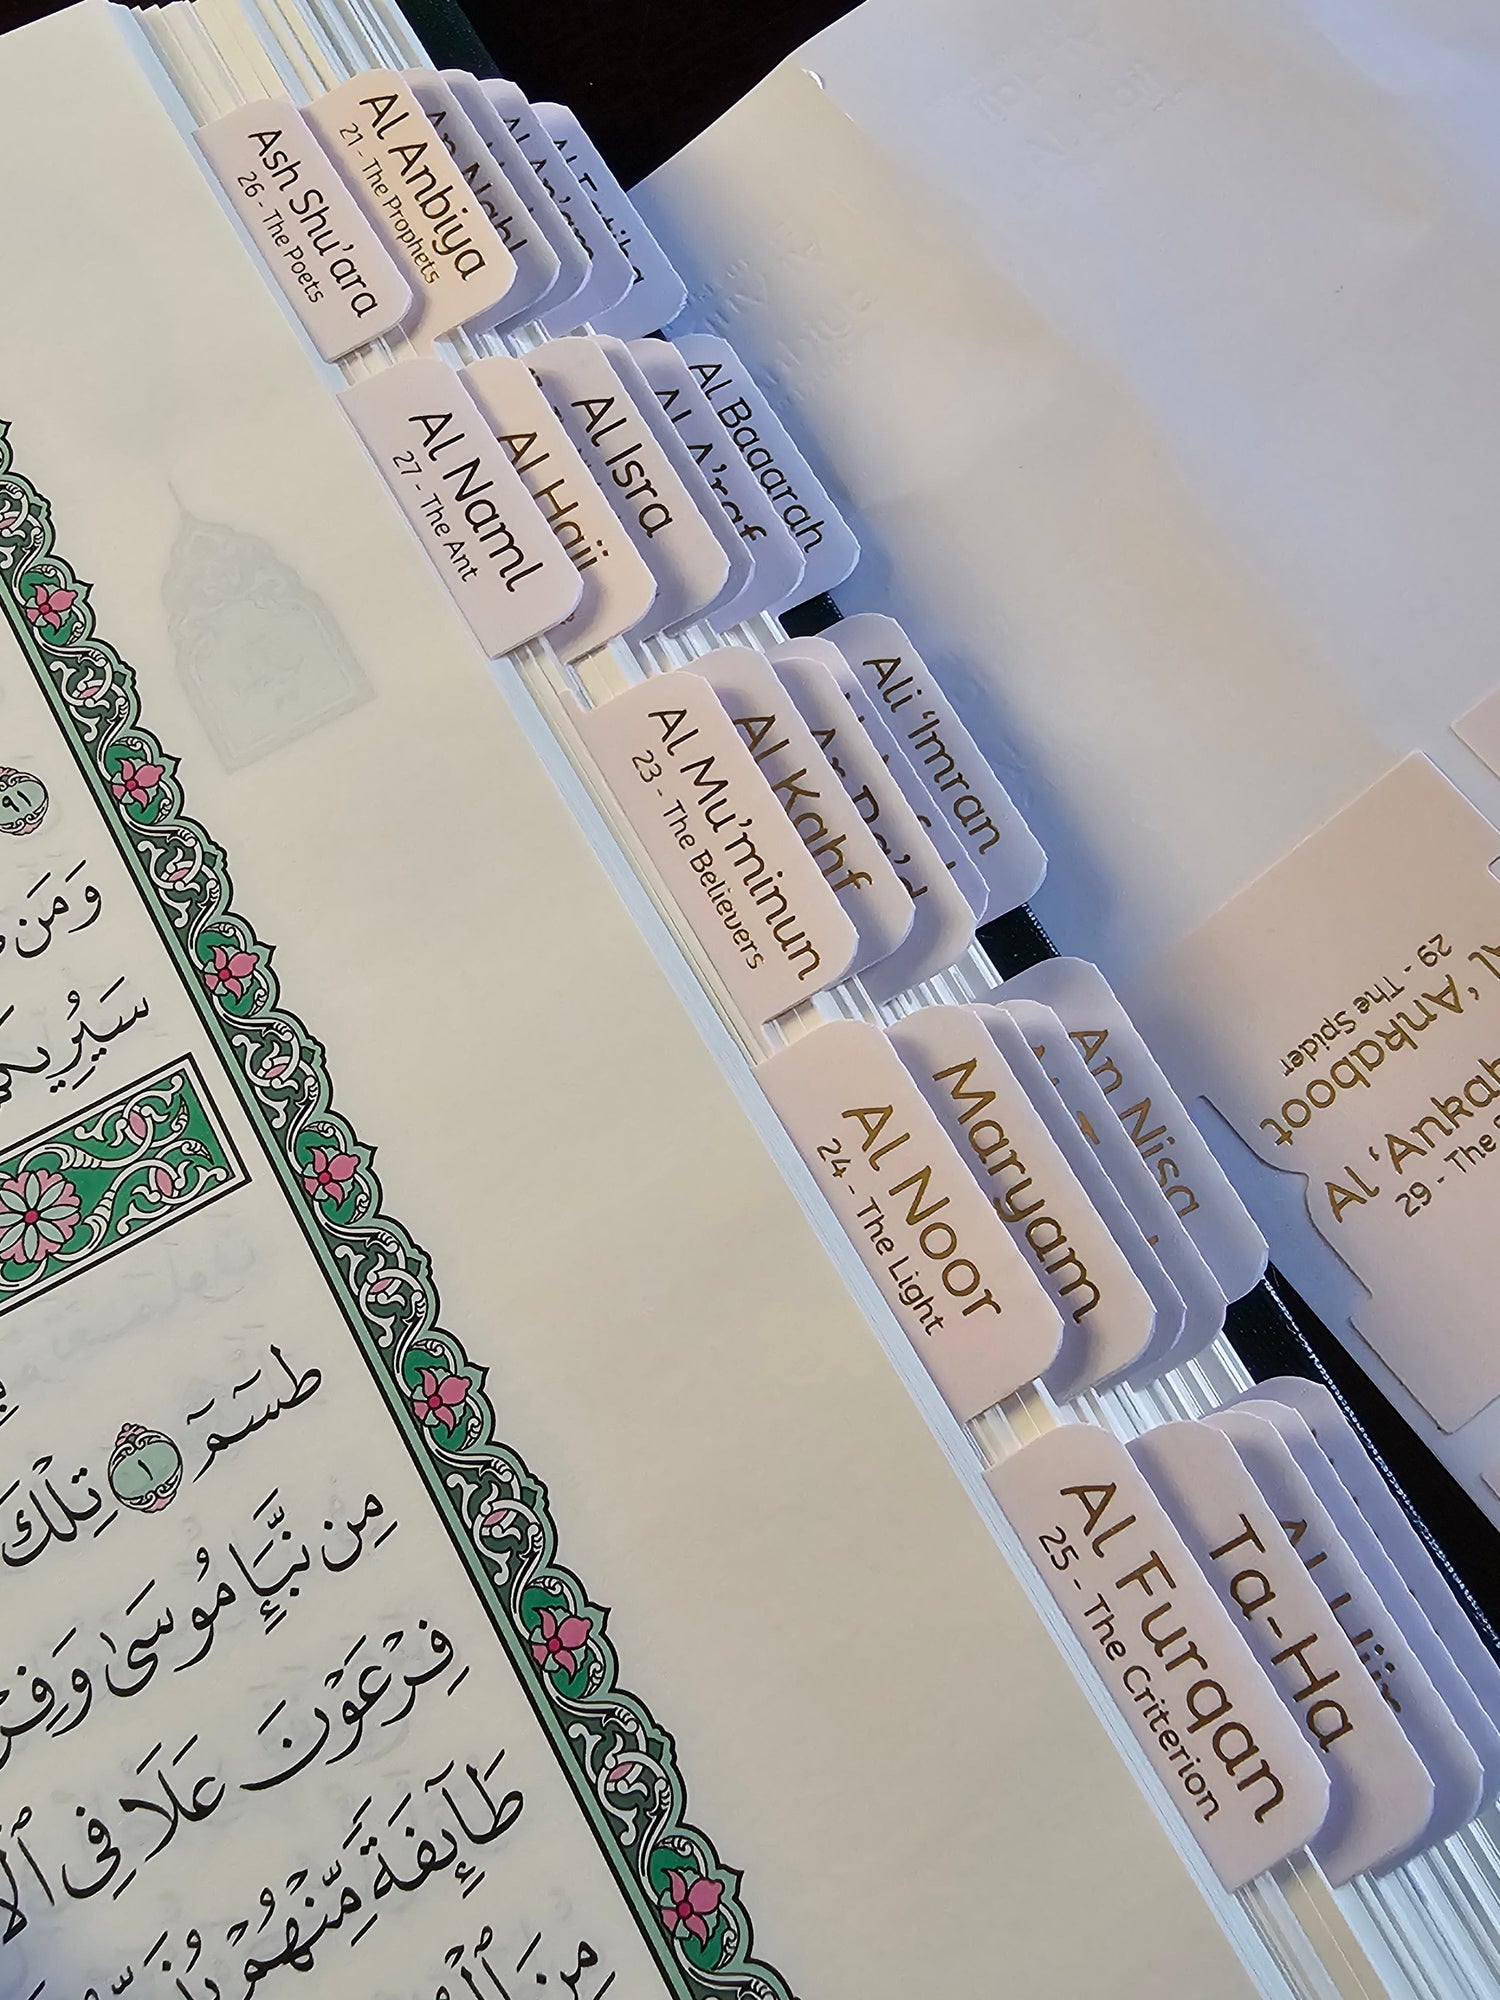 Ash Shu'ara
26 - The Poets
Al Anbiya
21 - The Prophets
An Nahl
Al An'am
Al Fatiha
Al Naml
27 - The Ant
Al Hajj
Al Isra
Al A'raf
Al Baqarah
Al Mu'minun
23 - The Believers
Al Kahf
Ar Ra'd
Ali 'Imran
Al Noor
24 - The Light
Maryam
An Nisa
Al Furqan
25 - The Criterion
Ta-Ha
Al Hijr
'Ankaboot
29 - The Spider
Al 'Ankab
29 - The
٩١
وَمَن
سَيُرِيكُمْ
طسٓمٓ ١ تِلْكَ
مِن نَّبَإِ مُوسَىٰ وَفِرْ
فِرْعَوْنَ عَلَا فِى ٱلْأ
طَآئِفَةً مِّنْهُمْ
مِنَ